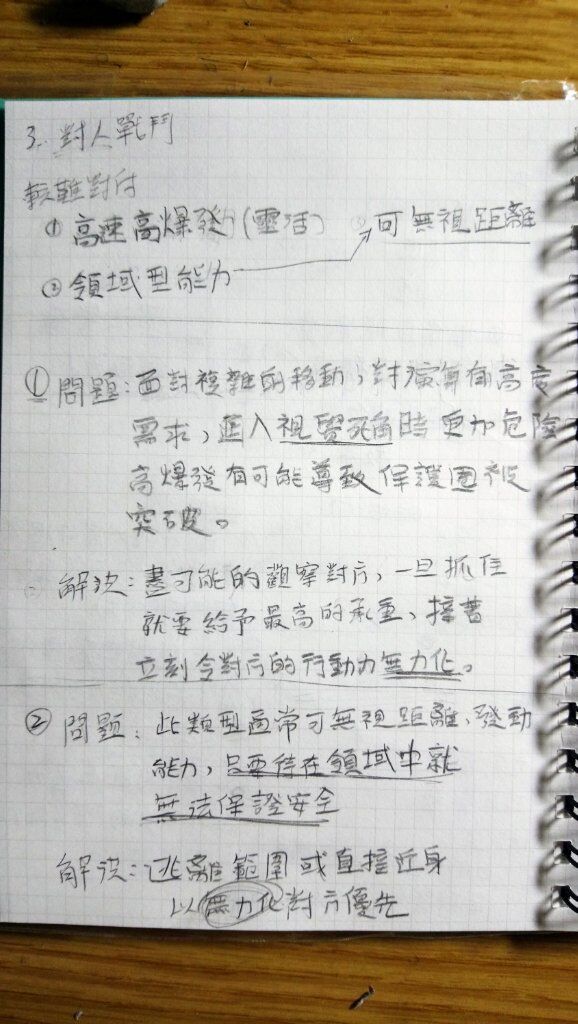 3. 對人戰鬥
較難對付
① 高速高爆發(靈活)
可無視距離
② 領域型能力
① 問題:面對複雜的移動,對演算有高度
需求,進入視覺死角時更加危險
高爆發有可能導致保護圈被
突破。
解決:盡可能的觀察對方,一旦抓住
就要給予最高的承重,接著
立刻令對方的行動力無力化。
② 問題:此類型通常可無視距離、發動
能力,只要待在領域中就
無法保證安全
解決:逃離範圍或直接近身
以無力化對方優先